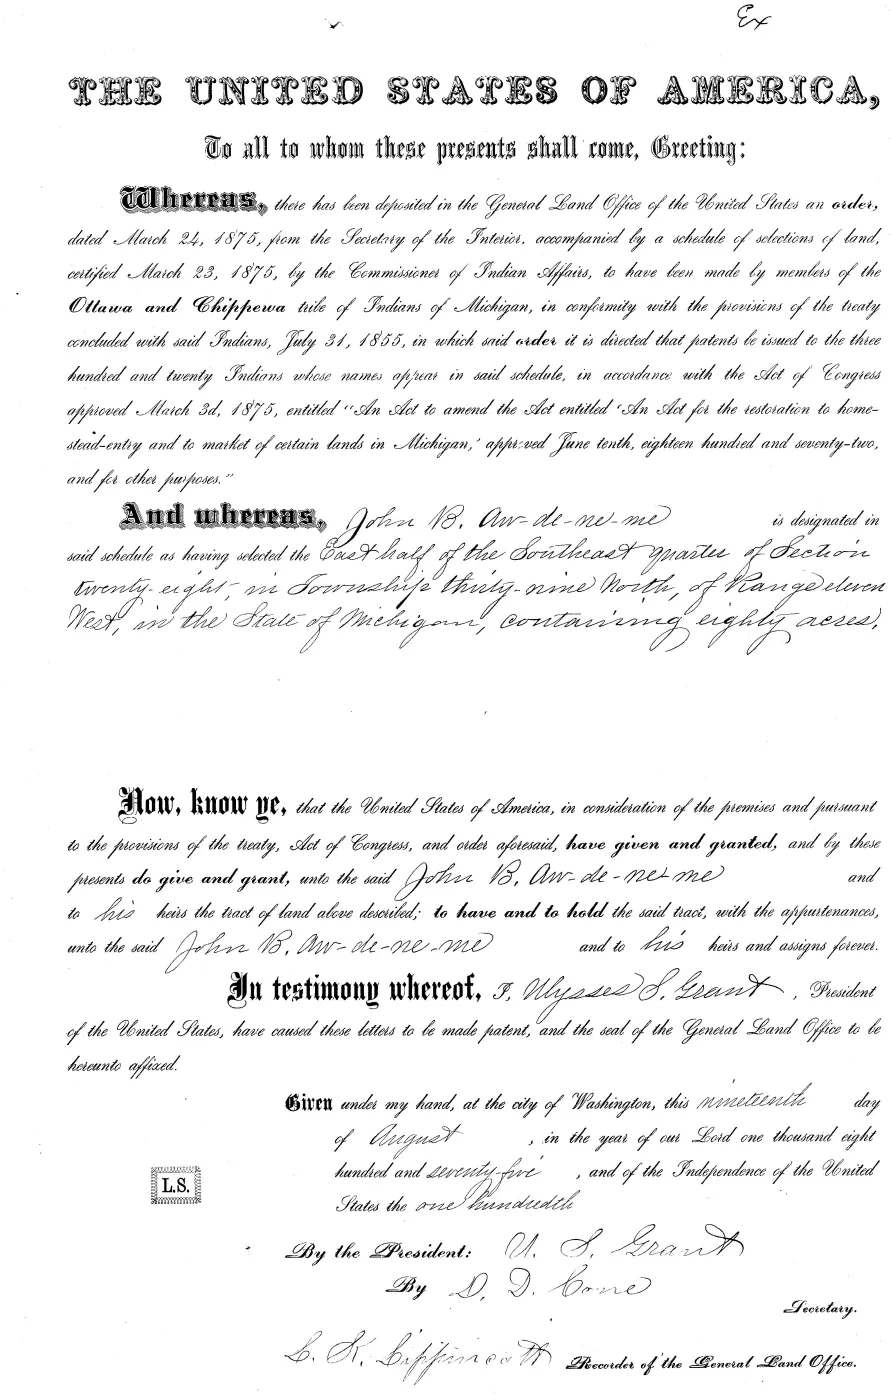 Ex
THE UNITED STATES OF AMERICA,
To all to whom these presents shall come, Greeting:
Whereas, there has been deposited in the General Land Office of the United States an order,
dated March 24, 1875, from the Secretary of the Interior, accompanied by a schedule of selections of land,
certified March 23, 1875, by the Commissioner of Indian Affairs, to have been made by members of the
Ottawa and Chippewa tribe of Indians of Michigan, in conformity with the provisions of the treaty
concluded with said Indians, July 31, 1855, in which said order it is directed that patents be issued to the three
hundred and twenty Indians whose names appear in said schedule, in accordance with the Act of Congress
approved March 3d, 1875, entitled "An Act to amend the Act entitled 'An Act for the restoration to home-
stead-entry and to market of certain lands in Michigan,' approved June tenth, eighteen hundred and seventy-two,
and for other purposes."
And whereas, John B. Aw-de-ne-me is designated in
said schedule as having selected the East half of the Southeast quarter of Section
twenty-eight, in Township thirty-nine North, of Range eleven
West, in the State of Michigan, containing eighty acres.
Now, know ye, that the United States of America, in consideration of the premises and pursuant
to the provisions of the treaty, Act of Congress, and order aforesaid, have given and granted, and by these
presents do give and grant, unto the said John B. Aw-de-ne-me and
to his heirs the tract of land above described; to have and to hold the said tract, with the appurtenances,
unto the said John B. Aw-de-ne-me and to his heirs and assigns forever.
In testimony whereof, I, Ulysses S. Grant, President
of the United States, have caused these letters to be made patent, and the seal of the General Land Office to be
hereunto affixed.
Given under my hand, at the city of Washington, this nineteenth day
of August, in the year of our Lord one thousand eight
hundred and seventy five, and of the Independence of the United
L.S.
States the one hundredth
By the President: U. S. Grant
By D. D. Cone
Secretary.
L. K. Lippincott Recorder of the General Land Office.